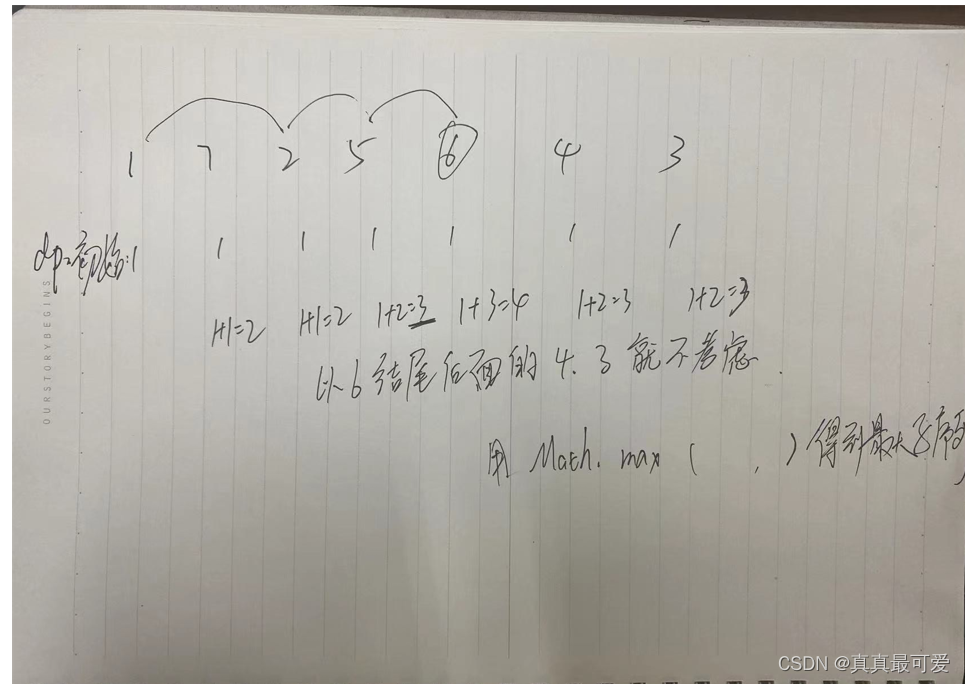 1 7 2 5 6 4 3
dp初始:1 1 1 1 1 1 1
1+1=2 1+1=2 1+2=3 1+3=4 1+2=3 1+2=3
以6结尾后面的4、3就不考虑.
用 Math.max ( , ) 得到最大子序列
OURSTORYBEGINS
CSDN @真真最可爱